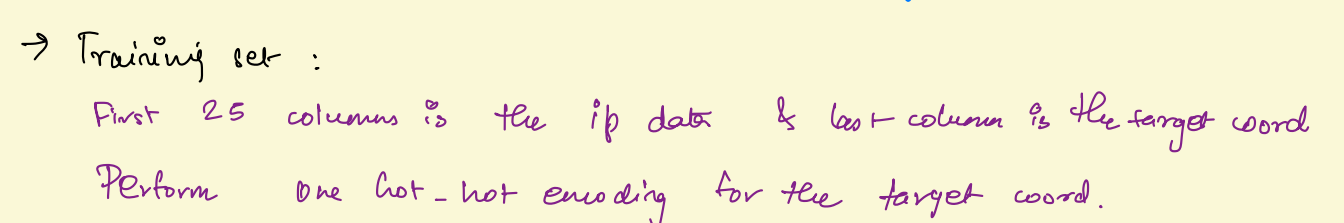 → Training set :
First 25 columns is the ip data & last column is the target coord
Perform one hot-hot encoding for the target coord.